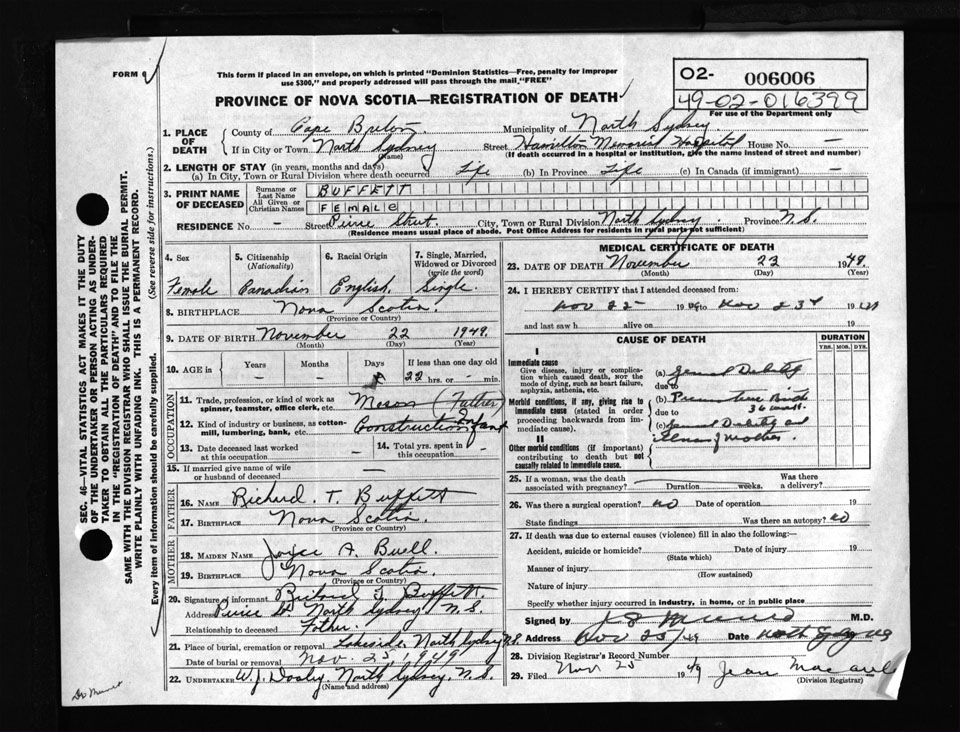 FORM 
This form if placed in an envelope, on which is printed "Dominion Statistics—Free, penalty for improper
use $300," and properly addressed will pass through the mail, "FREE"
PROVINCE OF NOVA SCOTIA—REGISTRATION OF DEATH
O2- 006006
49-02-016399
For use of the Department only
1. PLACE OF DEATH
County of Cape Breton Municipality of North Sydney
If in City or Town North Sydney Street Hamilton Memorial Hospital House No. —
(Name) (If death occurred in a hospital or institution, give the name instead of street and number)
2. LENGTH OF STAY (in years, months and days)
(a) In City, Town or Rural Division where death occurred Life (b) In Province Life (c) In Canada (if immigrant) —
3. PRINT NAME OF DECEASED
Surname or Last Name BUFFETT
All Given or Christian Names FEMALE
RESIDENCE No. — Street Pierce Street City, Town or Rural Division North Sydney Province N.S.
(Residence means usual place of abode. Post Office Address for residents in rural parts not sufficient)
4. Sex 5. Citizenship (Nationality) 6. Racial Origin 7. Single, Married, Widowed or Divorced (write the word)
Female Canadian English Single
8. BIRTHPLACE Nova Scotia
(Province or Country)
9. DATE OF BIRTH November 22 1949
(Month) (Day) (Year)
10. AGE in Years Months Days If less than one day old
— — 22 hrs. or — min.
OCCUPATION
11. Trade, profession or kind of work as spinner, teamster, office clerk, etc. Mason (Father)
12. Kind of industry or business, as cotton-mill, lumbering, bank, etc. Construction Infant
13. Date deceased last worked at this occupation —
14. Total yrs. spent in this occupation —
15. If married give name of wife or husband of deceased —
FATHER
16. NAME Richard T. Buffett
17. BIRTHPLACE Nova Scotia
(Province or Country)
MOTHER
18. MAIDEN NAME Joyce A. Buell
19. BIRTHPLACE Nova Scotia
(Province or Country)
20. Signature of informant Richard T. Buffett
Address Pierce St. North Sydney N.S.
Relationship to deceased Father
21. Place of burial, cremation or removal Lakeside North Sydney N.S.
Date of burial or removal Nov. 25 1949
22. UNDERTAKER W.J. Dooley, North Sydney, N.S.
(Name and address)
MEDICAL CERTIFICATE OF DEATH
23. DATE OF DEATH November 23 1949
(Month) (Day) (Year)
24. I HEREBY CERTIFY that I attended deceased from:
Nov 22 19 to Nov 23 19
and last saw h alive on 19
CAUSE OF DEATH DURATION
YRS. MOS. DYS.
I
Immediate cause
Give disease, injury or complication which caused death, NOT the mode of dying, such as heart failure, asphyxia, asthenia, etc.
(a) General Debility
due to
Morbid conditions, if any, giving rise to immediate cause (stated in order proceeding backwards from immediate cause).
(b) Premature Birth
due to 36 weeks
(c) General Debility and
Illness of Mother
II
Other morbid conditions (if important) contributing to death but not causally related to immediate cause.
25. If a woman, was the death associated with pregnancy? Duration weeks. Was there a delivery?
26. Was there a surgical operation? No Date of operation 19
State findings Was there an autopsy? No
27. If death was due to external causes (violence) fill in also the following:—
Accident, suicide or homicide? Date of injury 19
(State which)
Manner of injury
(How sustained)
Nature of injury
Specify whether injury occurred in industry, in home, or in public place
Signed by M.D.
Address Nov 25/49 Date North Sydney NS
28. Division Registrar's Record Number
29. Filed Nov 25 1949 Jean
(Division Registrar)
SEC. 46—VITAL STATISTICS ACT MAKES IT THE DUTY
OF THE UNDERTAKER OR PERSON ACTING AS UNDER-
TAKER TO OBTAIN ALL THE PARTICULARS REQUIRED
IN THE "REGISTRATION OF DEATH" AND TO FILE THE
SAME WITH THE DIVISION REGISTRAR WHO SHALL ISSUE THE BURIAL PERMIT.
WRITE PLAINLY WITH UNFADING INK. THIS IS A PERMANENT RECORD.
Every item of information should be carefully supplied. (See reverse side for instructions.)